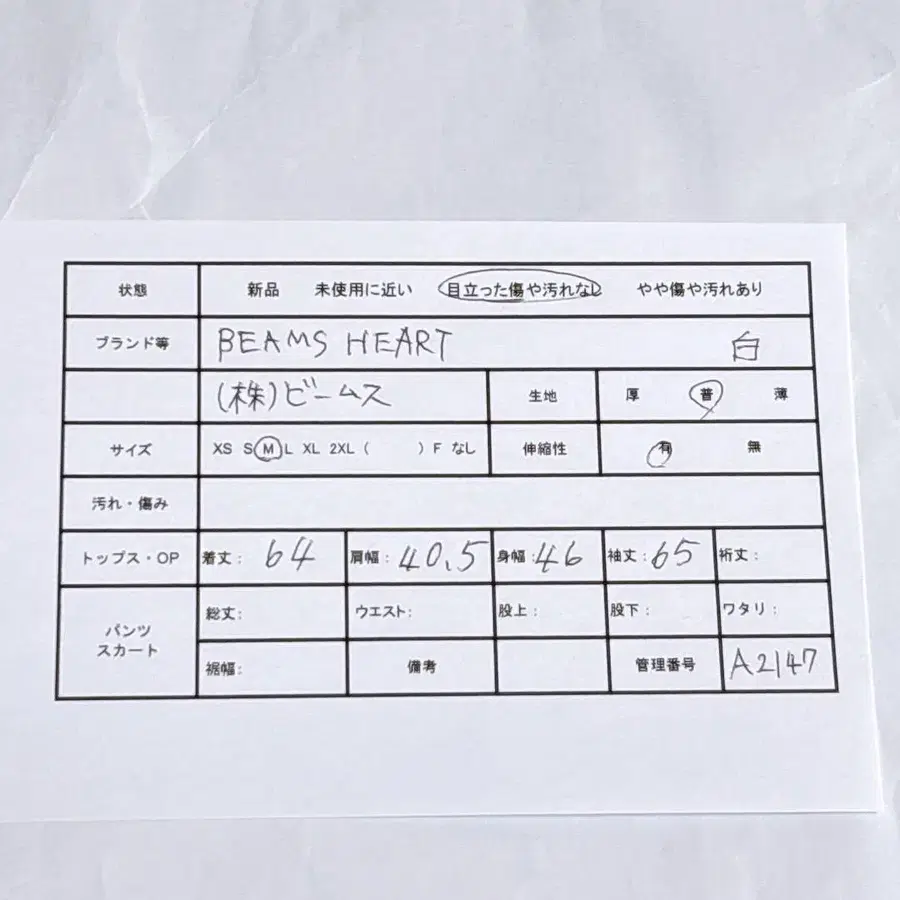 状態 新品 未使用に近い 目立った傷や汚れなし やや傷や汚れあり
ブランド等 BEAMS HEART 白
(株)ビームス 生地 厚 普 薄
サイズ XS S M L XL 2XL ( ) F なし 伸縮性 有 無
汚れ・傷み
トップス・OP 着丈: 64 肩幅: 40.5 身幅: 46 袖丈: 65 裄丈:
パンツ スカート 総丈: ウエスト: 股上: 股下: ワタリ:
裾幅: 備考 管理番号 A2147